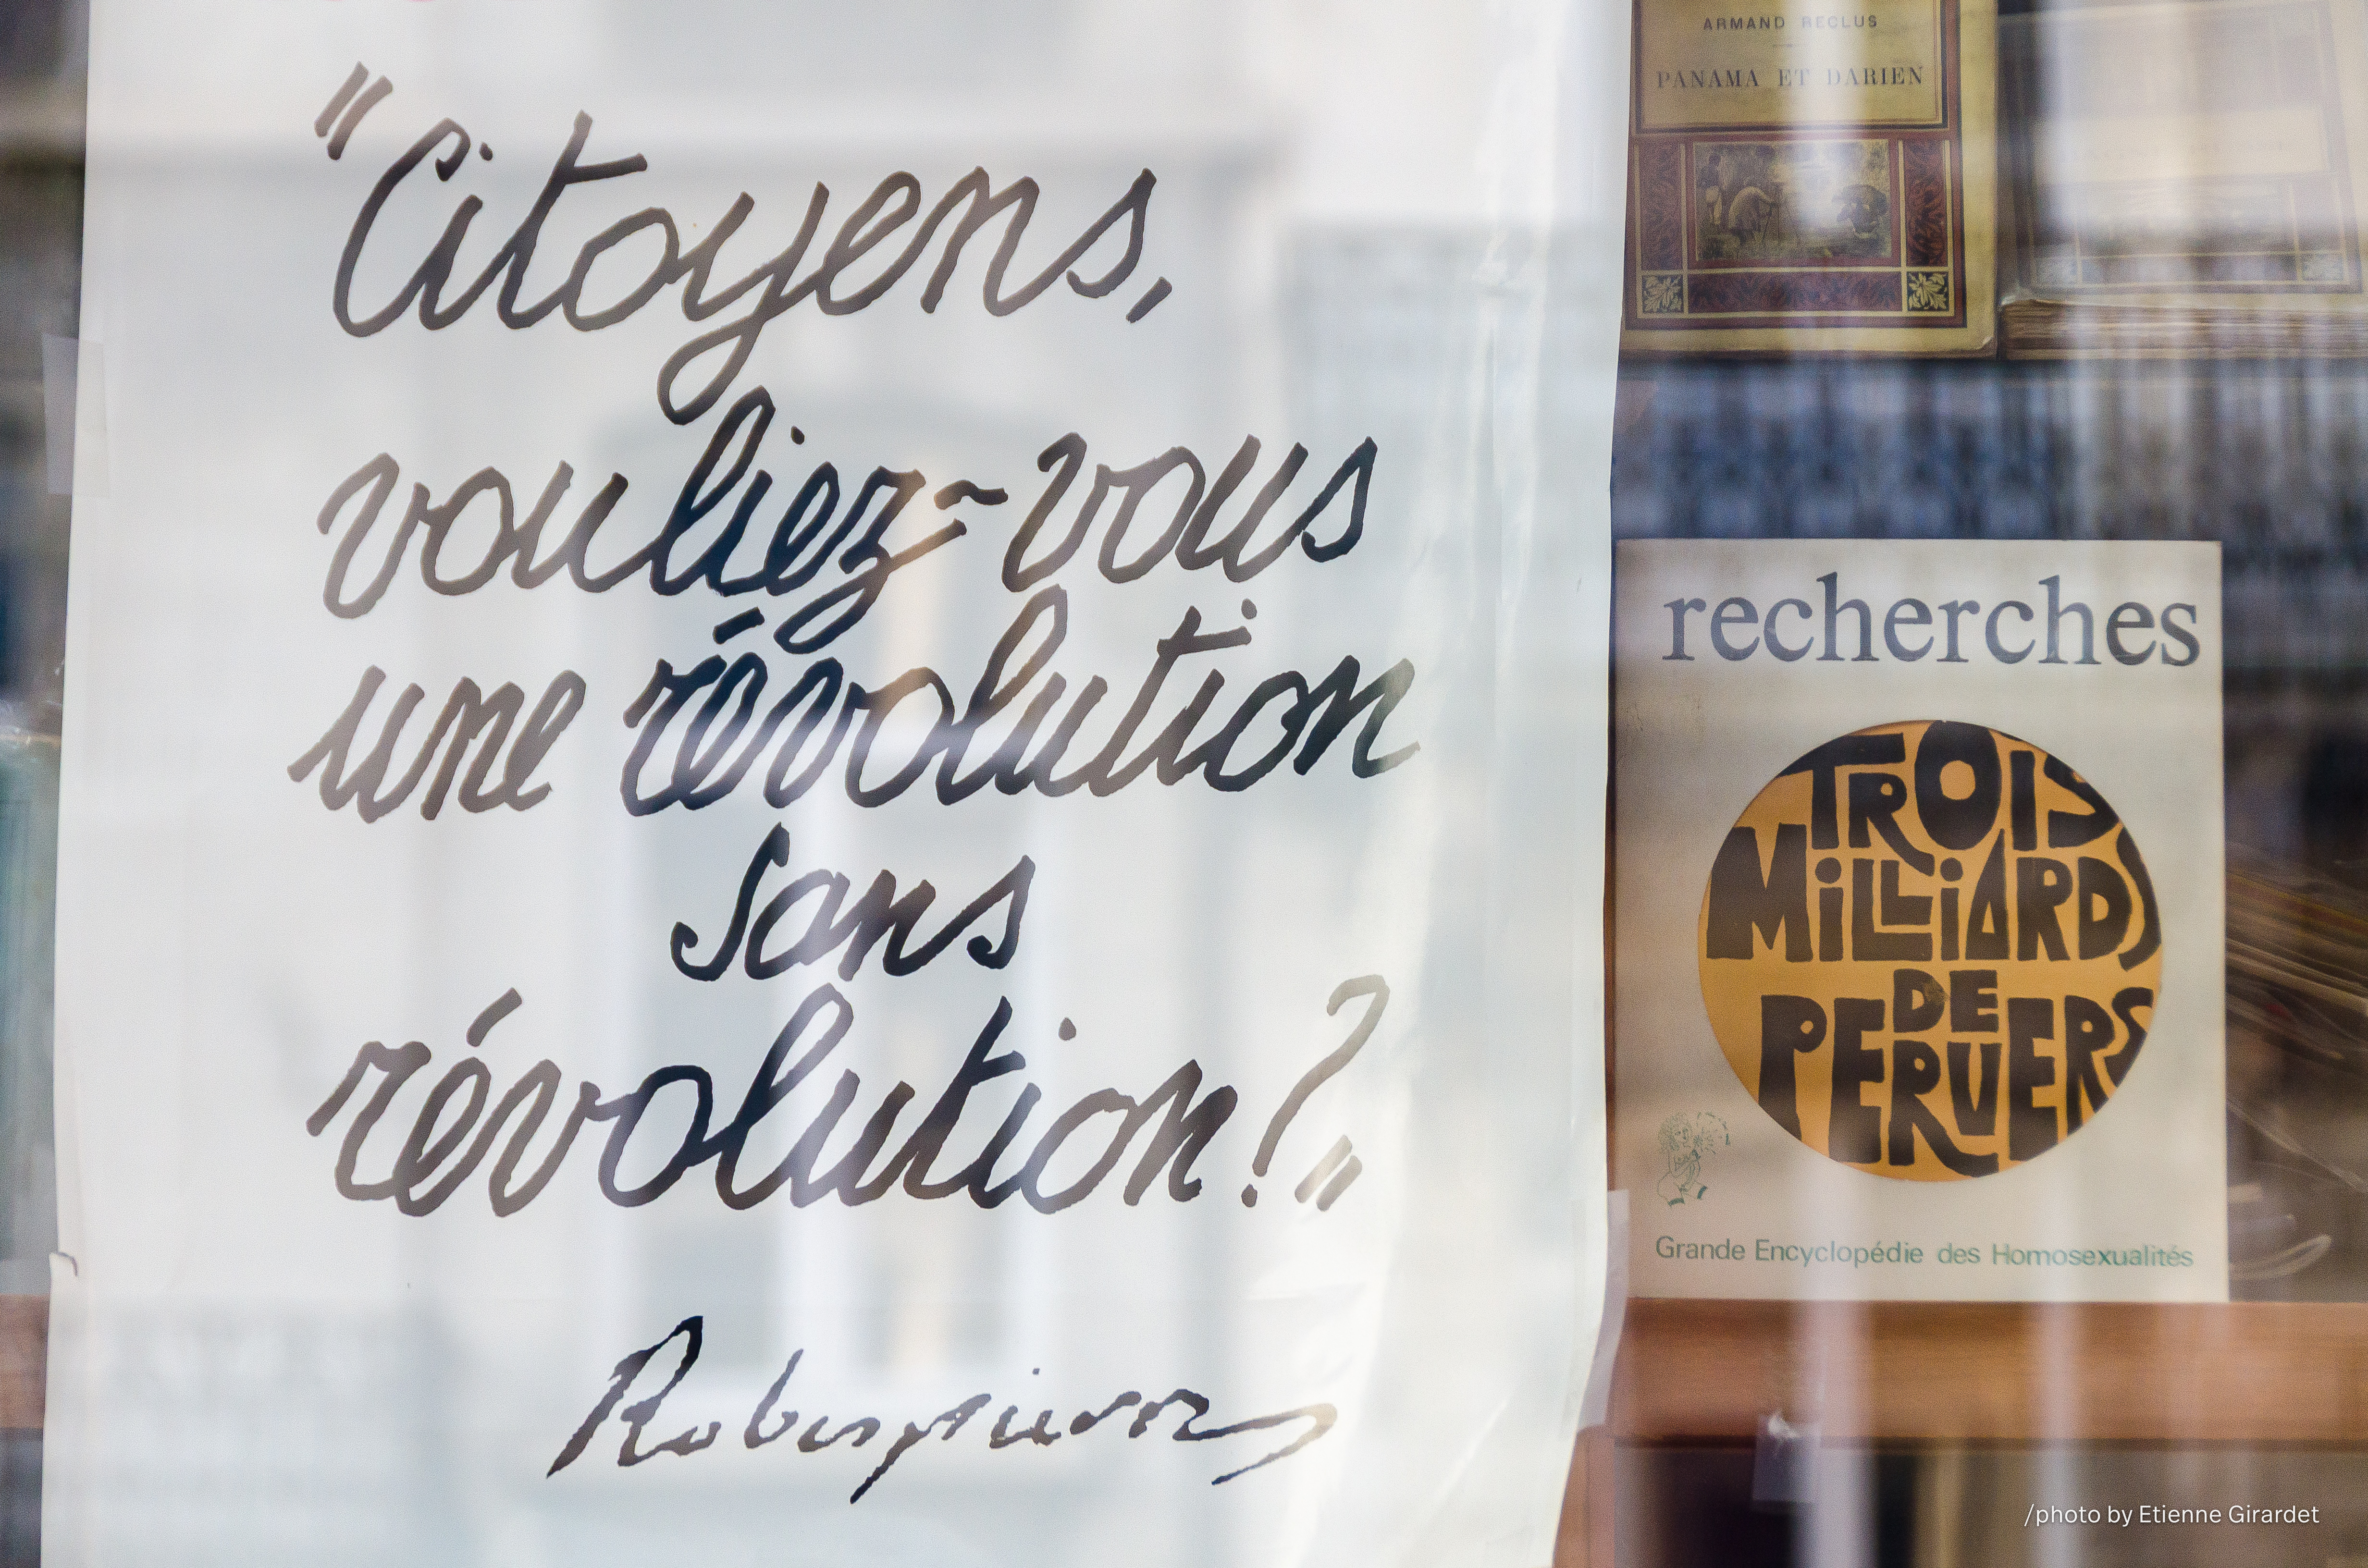 "Citoyens,
vouliez-vous
une révolution
sans
révolution?"
Robespierre
ARMAND RECLUS
PANAMA ET DARIEN
recherches
TROIS
MiLLiARDS
DE
PERVERS
Grande Encyclopédie des Homosexualités
/photo by Etienne Girardet